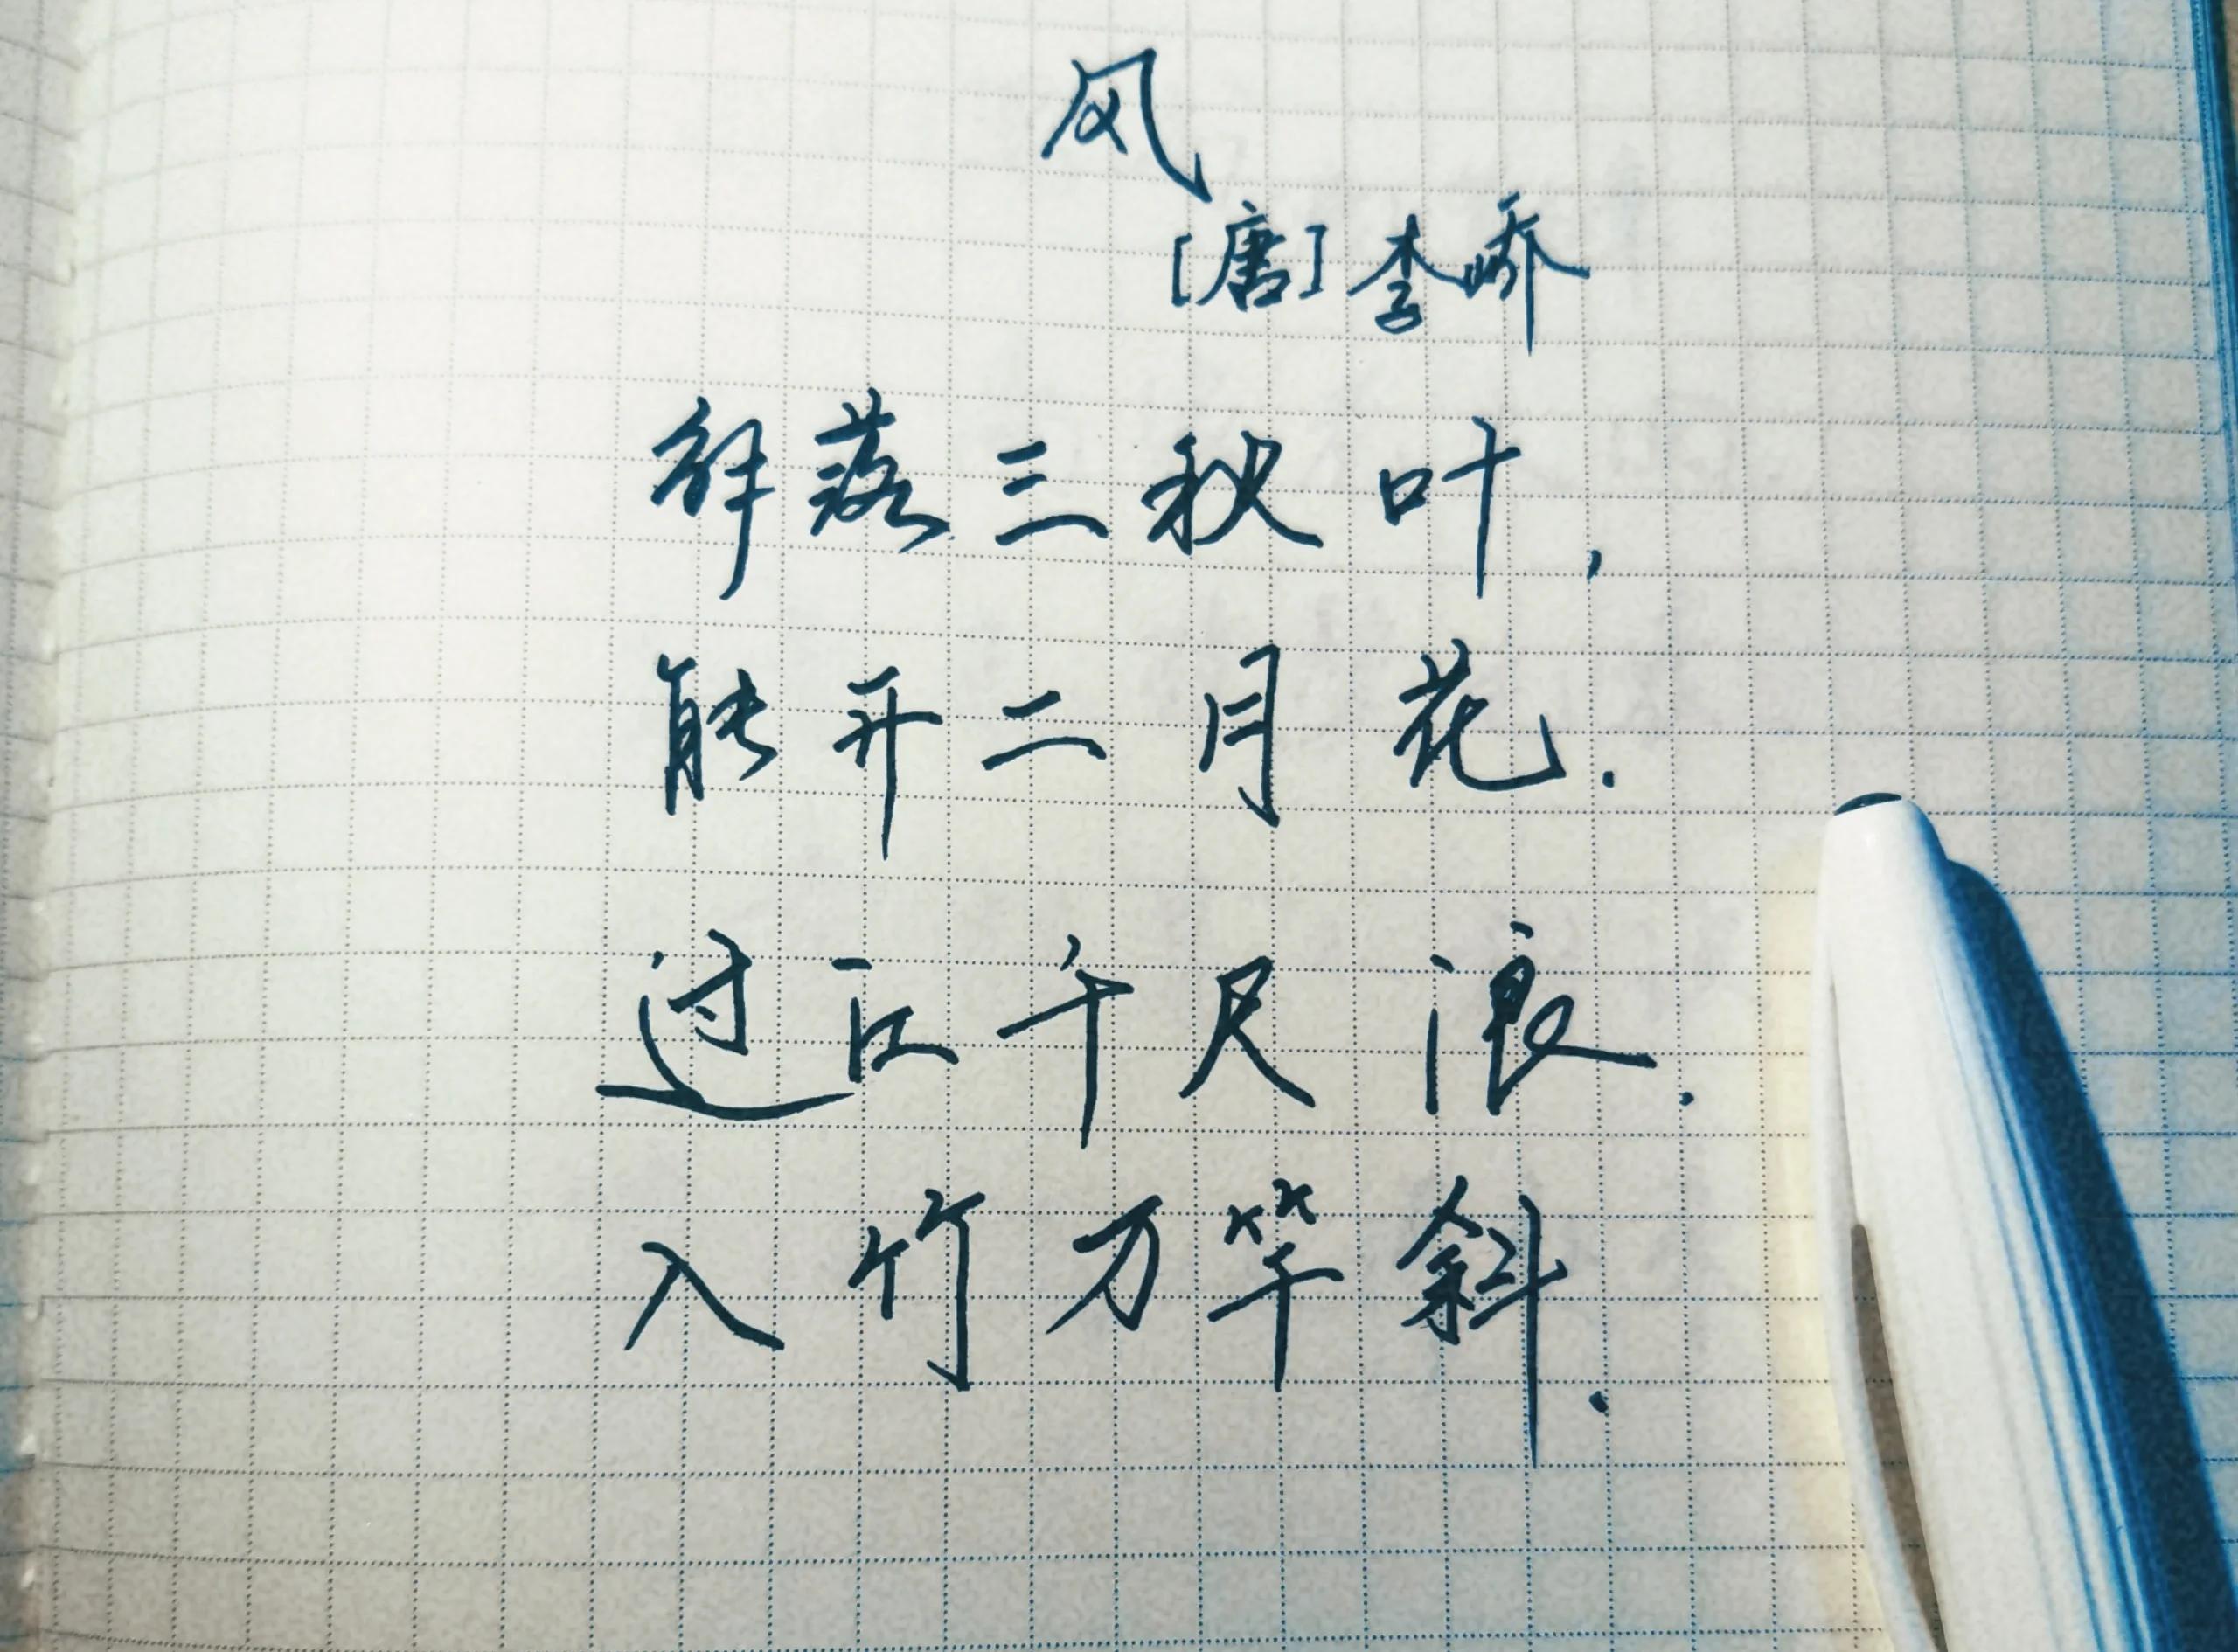 风
[唐]李峤
解落三秋叶,
能开二月花.
过江千尺浪.
入竹万竿斜.